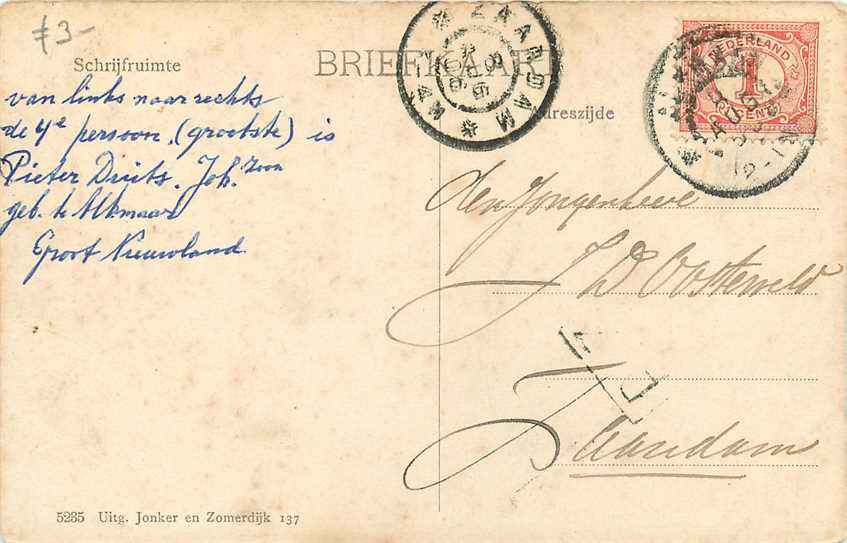 f 3-
Schrijfruimte
BRIEFKAART
Adreszijde
van links naar rechts
de 4e persoon (grootste) is
Pieter Druits. Joh. zoon
geb. te Alkmaar
Groot Nieuwland.
ZAARDAM
NEDERLAND
1
CENT
AUG
den Jongenheere
J D Oosterveld
Zaandam
5235 Uitg. Jonker en Zomerdijk 137